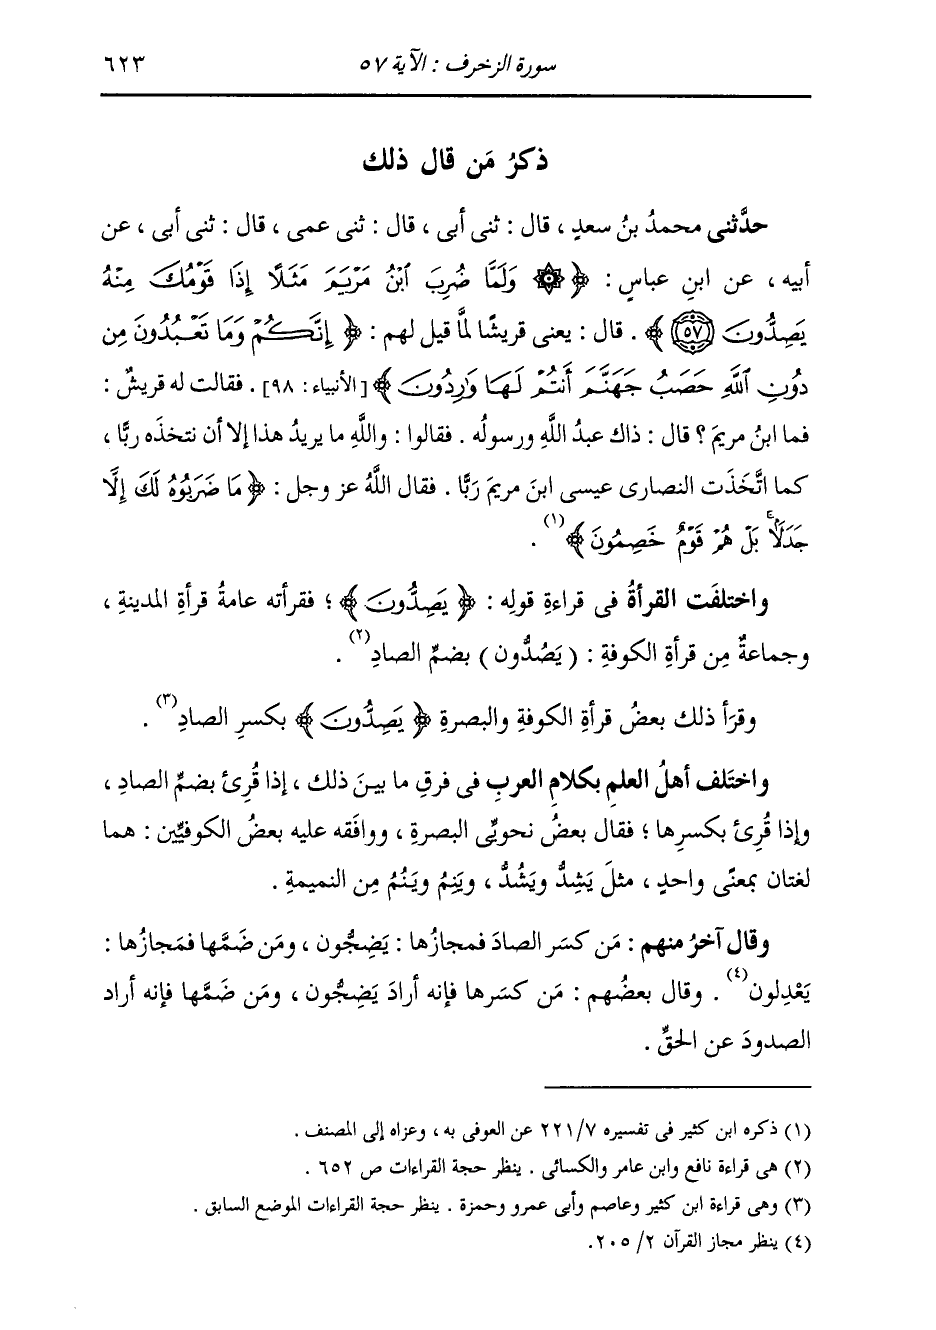 سورة الزخرف : الآية ٥٧
٦٢٣
ذكرُ مَن قال ذلك
حدَّثنى محمدُ بنُ سعدٍ ، قال : ثنى أبى ، قال : ثنى عمى ، قال : ثنى أبى ، عن
أبيه ، عن ابنِ عباسٍ : ﴿ ۞ وَلَمَّا ضُرِبَ ٱبْنُ مَرْيَمَ مَثَلًا إِذَا قَوْمُكَ مِنْهُ
يَصِدُّونَ ٥٧ ﴾ . قال : يعنى قريشًا لمَّا قيل لهم : ﴿ إِنَّكُمْ وَمَا تَعْبُدُونَ مِن
دُونِ ٱللَّهِ حَصَبُ جَهَنَّمَ أَنتُمْ لَهَا وَٰرِدُونَ ﴾ [الأنبياء : ٩٨] . فقالت له قريشٌ :
فما ابنُ مريمَ ؟ قال : ذاك عبدُ اللَّهِ ورسولُه . فقالوا : واللَّهِ ما يريدُ هذا إلا أن نتخذَه ربًّا ،
كما اتَّخَذَت النصارى عيسى ابنَ مريمَ رَبًّا . فقال اللَّهُ عز وجل : ﴿ مَا ضَرَبُوهُ لَكَ إِلَّا
جَدَلًۢا ۚ بَلْ هُمْ قَوْمٌ خَصِمُونَ ﴾(١) .
واختلَفَت القرأةُ فى قراءةِ قولِه : ﴿ يَصِدُّونَ ﴾ ؛ فقرأته عامةُ قرأةِ المدينةِ ،
وجماعةٌ مِن قرأةِ الكوفةِ : ( يَصُدُّون ) بضمِّ الصادِ(٢) .
وقرَأ ذلك بعضُ قرأةِ الكوفةِ والبصرةِ ﴿ يَصِدُّونَ ﴾ بكسرِ الصادِ(٣) .
واختَلف أهلُ العلمِ بكلامِ العربِ فى فرقِ ما بينَ ذلك ، إذا قُرِئ بضمِّ الصادِ ،
وإذا قُرِئ بكسرِها ؛ فقال بعضُ نحويِّى البصرةِ ، ووافَقه عليه بعضُ الكوفيِّين : هما
لغتان بمعنًى واحدٍ ، مثلَ يَشِدُّ ويَشُدُّ ، ويَنِمُ ويَنُمُ مِن النميمةِ .
وقال آخرُ منهم : مَن كسَر الصادَ فمجازُها : يَضِجُّون ، ومَن ضَمَّها فمَجازُها :
يَعْدِلون(٤) . وقال بعضُهم : مَن كسَرها فإنه أرادَ يَضِجُّون ، ومَن ضَمَّها فإنه أراد
الصدودَ عن الحقِّ .
(١) ذكره ابن كثير فى تفسيره ٢٢١/٧ عن العوفى به ، وعزاه إلى المصنف .
(٢) هى قراءة نافع وابن عامر والكسائى . ينظر حجة القراءات ص ٦٥٢ .
(٣) وهى قراءة ابن كثير وعاصم وأبى عمرو وحمزة . ينظر حجة القراءات الموضع السابق .
(٤) ينظر مجاز القرآن ٢/ ٢٠٥.